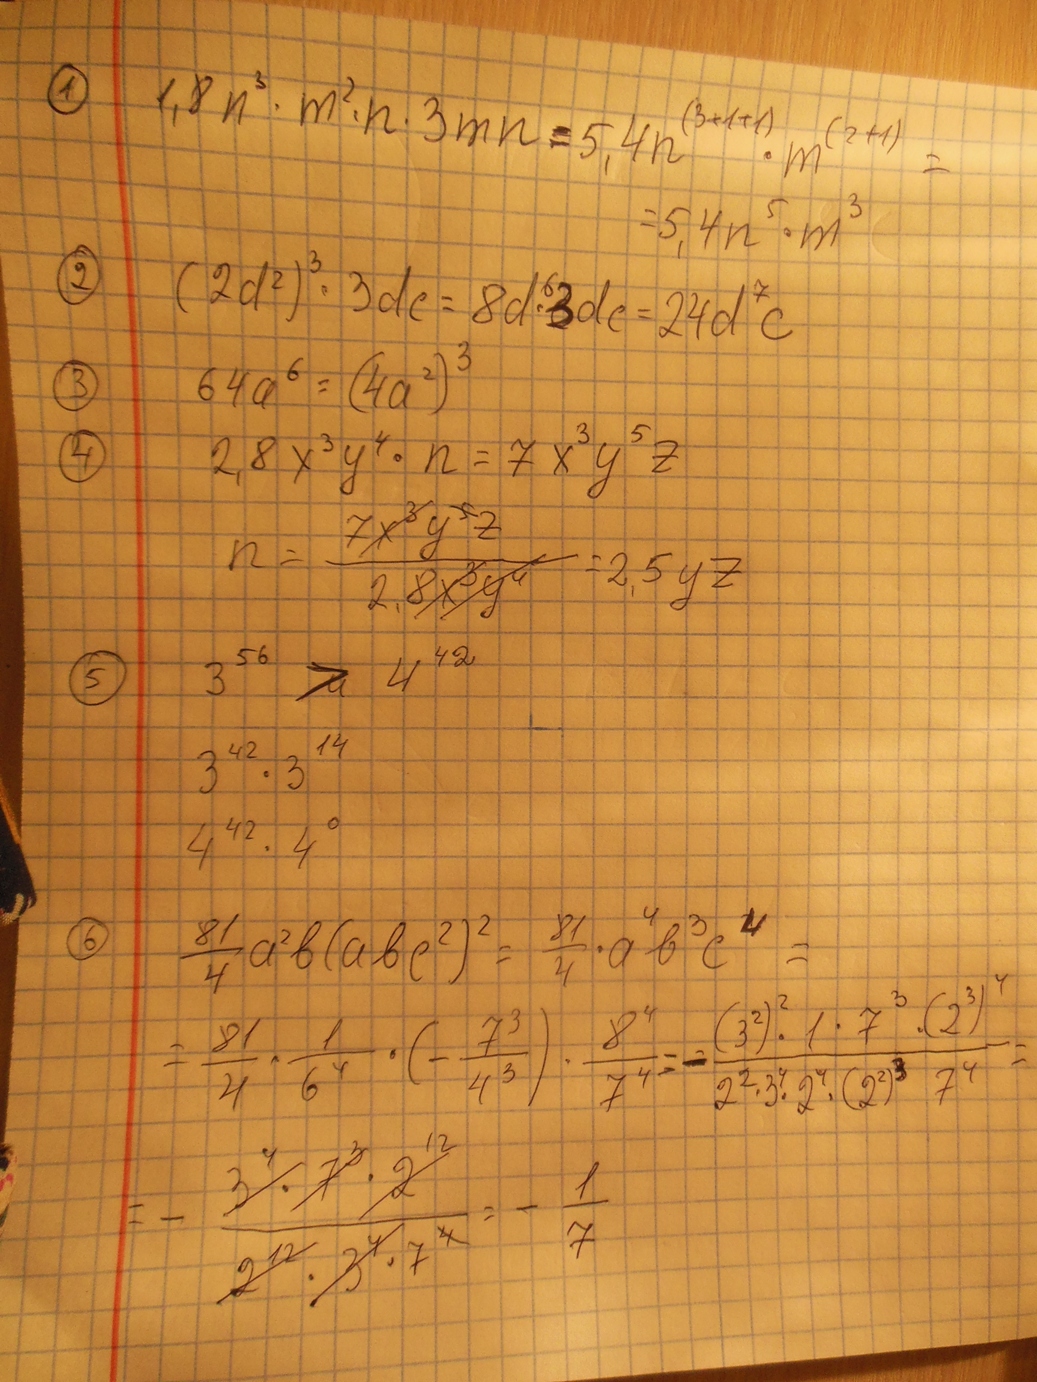 ① 1,8n³ · m² · n · 3mn = 5,4n⁽³⁺¹⁺¹⁾ · m⁽²⁺¹⁾ =
= 5,4n⁵ · m³
② (2d²)³ · 3dc = 8d⁶ · 3dc = 24d⁷c
③ 64a⁶ = (4a²)³
④ 2,8x³y⁴ · n = 7x³y⁵z
n = 7x³y⁵z / 2,8x³y⁴ = 2,5yz
⑤ 3⁵⁶ > 4⁴²
3⁴² · 3¹⁴
4⁴² · 4⁰
⑥ 81/4 a²b(abc²)² = 81/4 · a⁴b³c⁴ =
= 81/4 · 1/6⁴ · (- 7³/4³) · 8⁴/7⁴ = - (3²)² · 1 · 7³ · (2³)⁴ / 2² · 3⁴ · 2⁴ · (2²)³ 7⁴ =
= - 3⁴ · 7³ · 2¹² / 2¹² · 3⁴ · 7⁴ = - 1/7